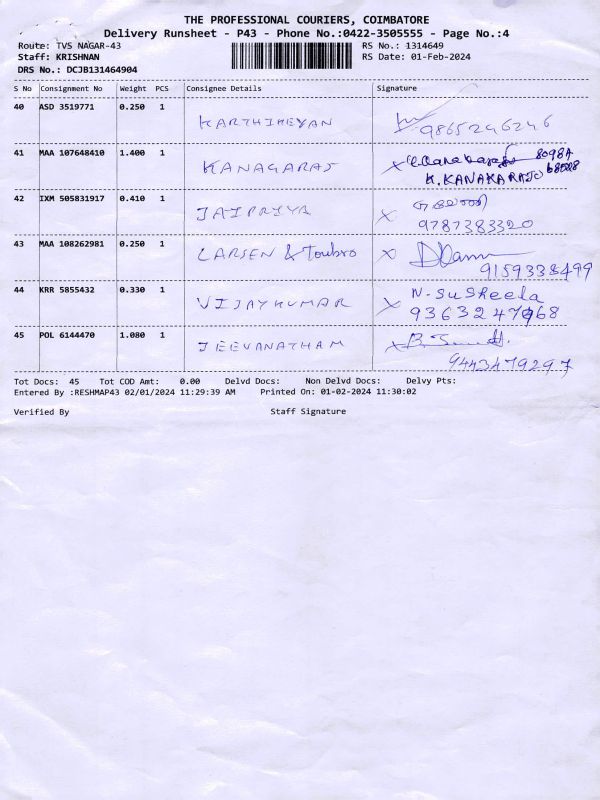 THE PROFESSIONAL COURIERS, COIMBATORE
Delivery Runsheet - P43 - Phone No.:0422-3505555 - Page No.:4
Route: TVS NAGAR-43 RS No.: 1314649
Staff: KRISHNAN RS Date: 01-Feb-2024
DRS No.: DCJB131464904
S No Consignment No Weight PCS Consignee Details Signature
40 ASD 3519771 0.250 1 KARTHIKEYAN 9865246246
41 MAA 107648410 1.400 1 KANAGARAJ
K.KANAKARAJ
42 IXM 505831917 0.410 1 JAIPRIYA
9787383320
43 MAA 108262981 0.250 1 LARSEN & Toubro
9159338499
44 KRR 5855432 0.330 1 VIJAYKUMAR N-Susheela
9363247968
45 POL 6144470 1.080 1 JEEVANATHAM
9443479297
Tot Docs: 45 Tot COD Amt: 0.00 Delvd Docs: Non Delvd Docs: Delvy Pts:
Entered By :RESHMAP43 02/01/2024 11:29:39 AM Printed On: 01-02-2024 11:30:02
Verified By Staff Signature